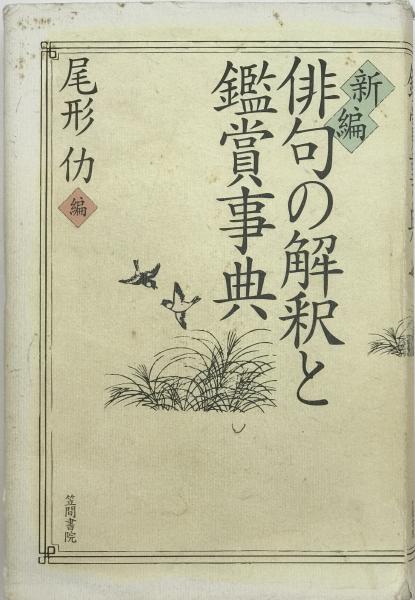 新編
俳句の解釈と
鑑賞事典
尾形 仂
編
笠間書院